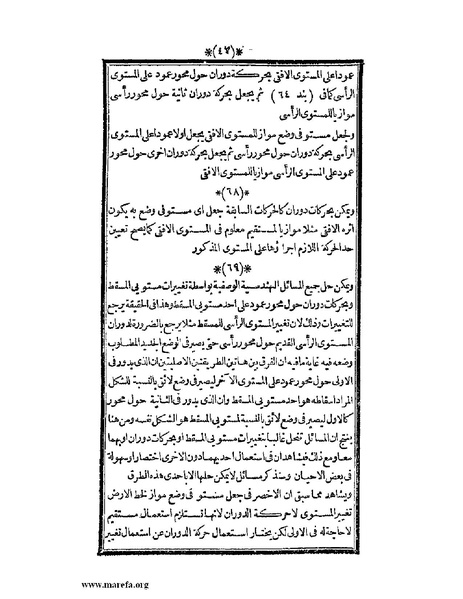 *(٤٧)*
عموداعلى المستوى الافقى بحركة دوران حول محور عمود على المستوى
الرأسى كمافى (بند ٦٤) ثم يجعل بحركة دوران ثانية حول محور رأسى
موازياللمستوى الرأسى
ولجعل مستوفى وضع مواز للمستوى الافقى يجعل اولاعموداعلى المستوى
الرأسى بحركة دوران حول محور رأسى ثم يجعل بحركة دوران اخرى حول محور
عمود على المستوى الرأسى موازياللمستوى الافقى
*(٦٨)*
ويمكن بحركات دوران كالحركات السابقة جعل اى مستوفى وضع به يكون
اثره الافقى مثلا موازيالمستقيم معلوم فى المستوى الافقى كمايصح تعيين
حدالحركة اللازم اجراؤهاعلى المستوى المذكور
*(٦٩)*
ويمكن حل جميع المسائل الهندسية الوصفية بواسطة تغييرات مستويى المسقط
وبحركات دوران حول محور عمود على احد مستويى المسقط وهذا فى الحقيقة يرجع
للتغييرات وذلك لان تغيير المستوى الرأسى للمسقط مثلا يرجع بالضرورة لدوران
المستوى الرأسى القديم حول محور رأسى حتى يصير فى الوضع الجديد المطلوب
وضعه فيه غاية مافيه ان الفرق بين هاتين الطريقتين الاصليتين ان الذى يدور فى
الاولى حول محور عمود على المستوى الآخر ليصير فى وضع لائق بالنسبة للشكل
المراد اسقاطه هو احد مستويى المسقط وان الذى يدور فى الثانية حول محور
كالاول ليصير فى وضع لائق بالنسبة لمستويى المسقط هو الشكل نفسه ومن هذا
ينتج ان المسائل تنحل غالبا بتغييرات مستويى المسقط او بحركات دوران او بهما
معا ومع ذلك فيشاهد ان فى استعمال احديهما دون الاخرى اختصار اوسهولة
فى بعض الاحيان وسنذكر مسائل لايمكن حلها الا باحدى هذه الطرق
ويشاهد مماسبق ان الاخصر فى جعل مستوفى وضع مواز لخط الارض
تغيير المستوى لاحركة الدوران لانها تستلزم استعمال مستقيم
لاحاجة له فى الاولى لكن يختار استعمال حركة الدوران عن استعمال تغيير
www.marefa.org